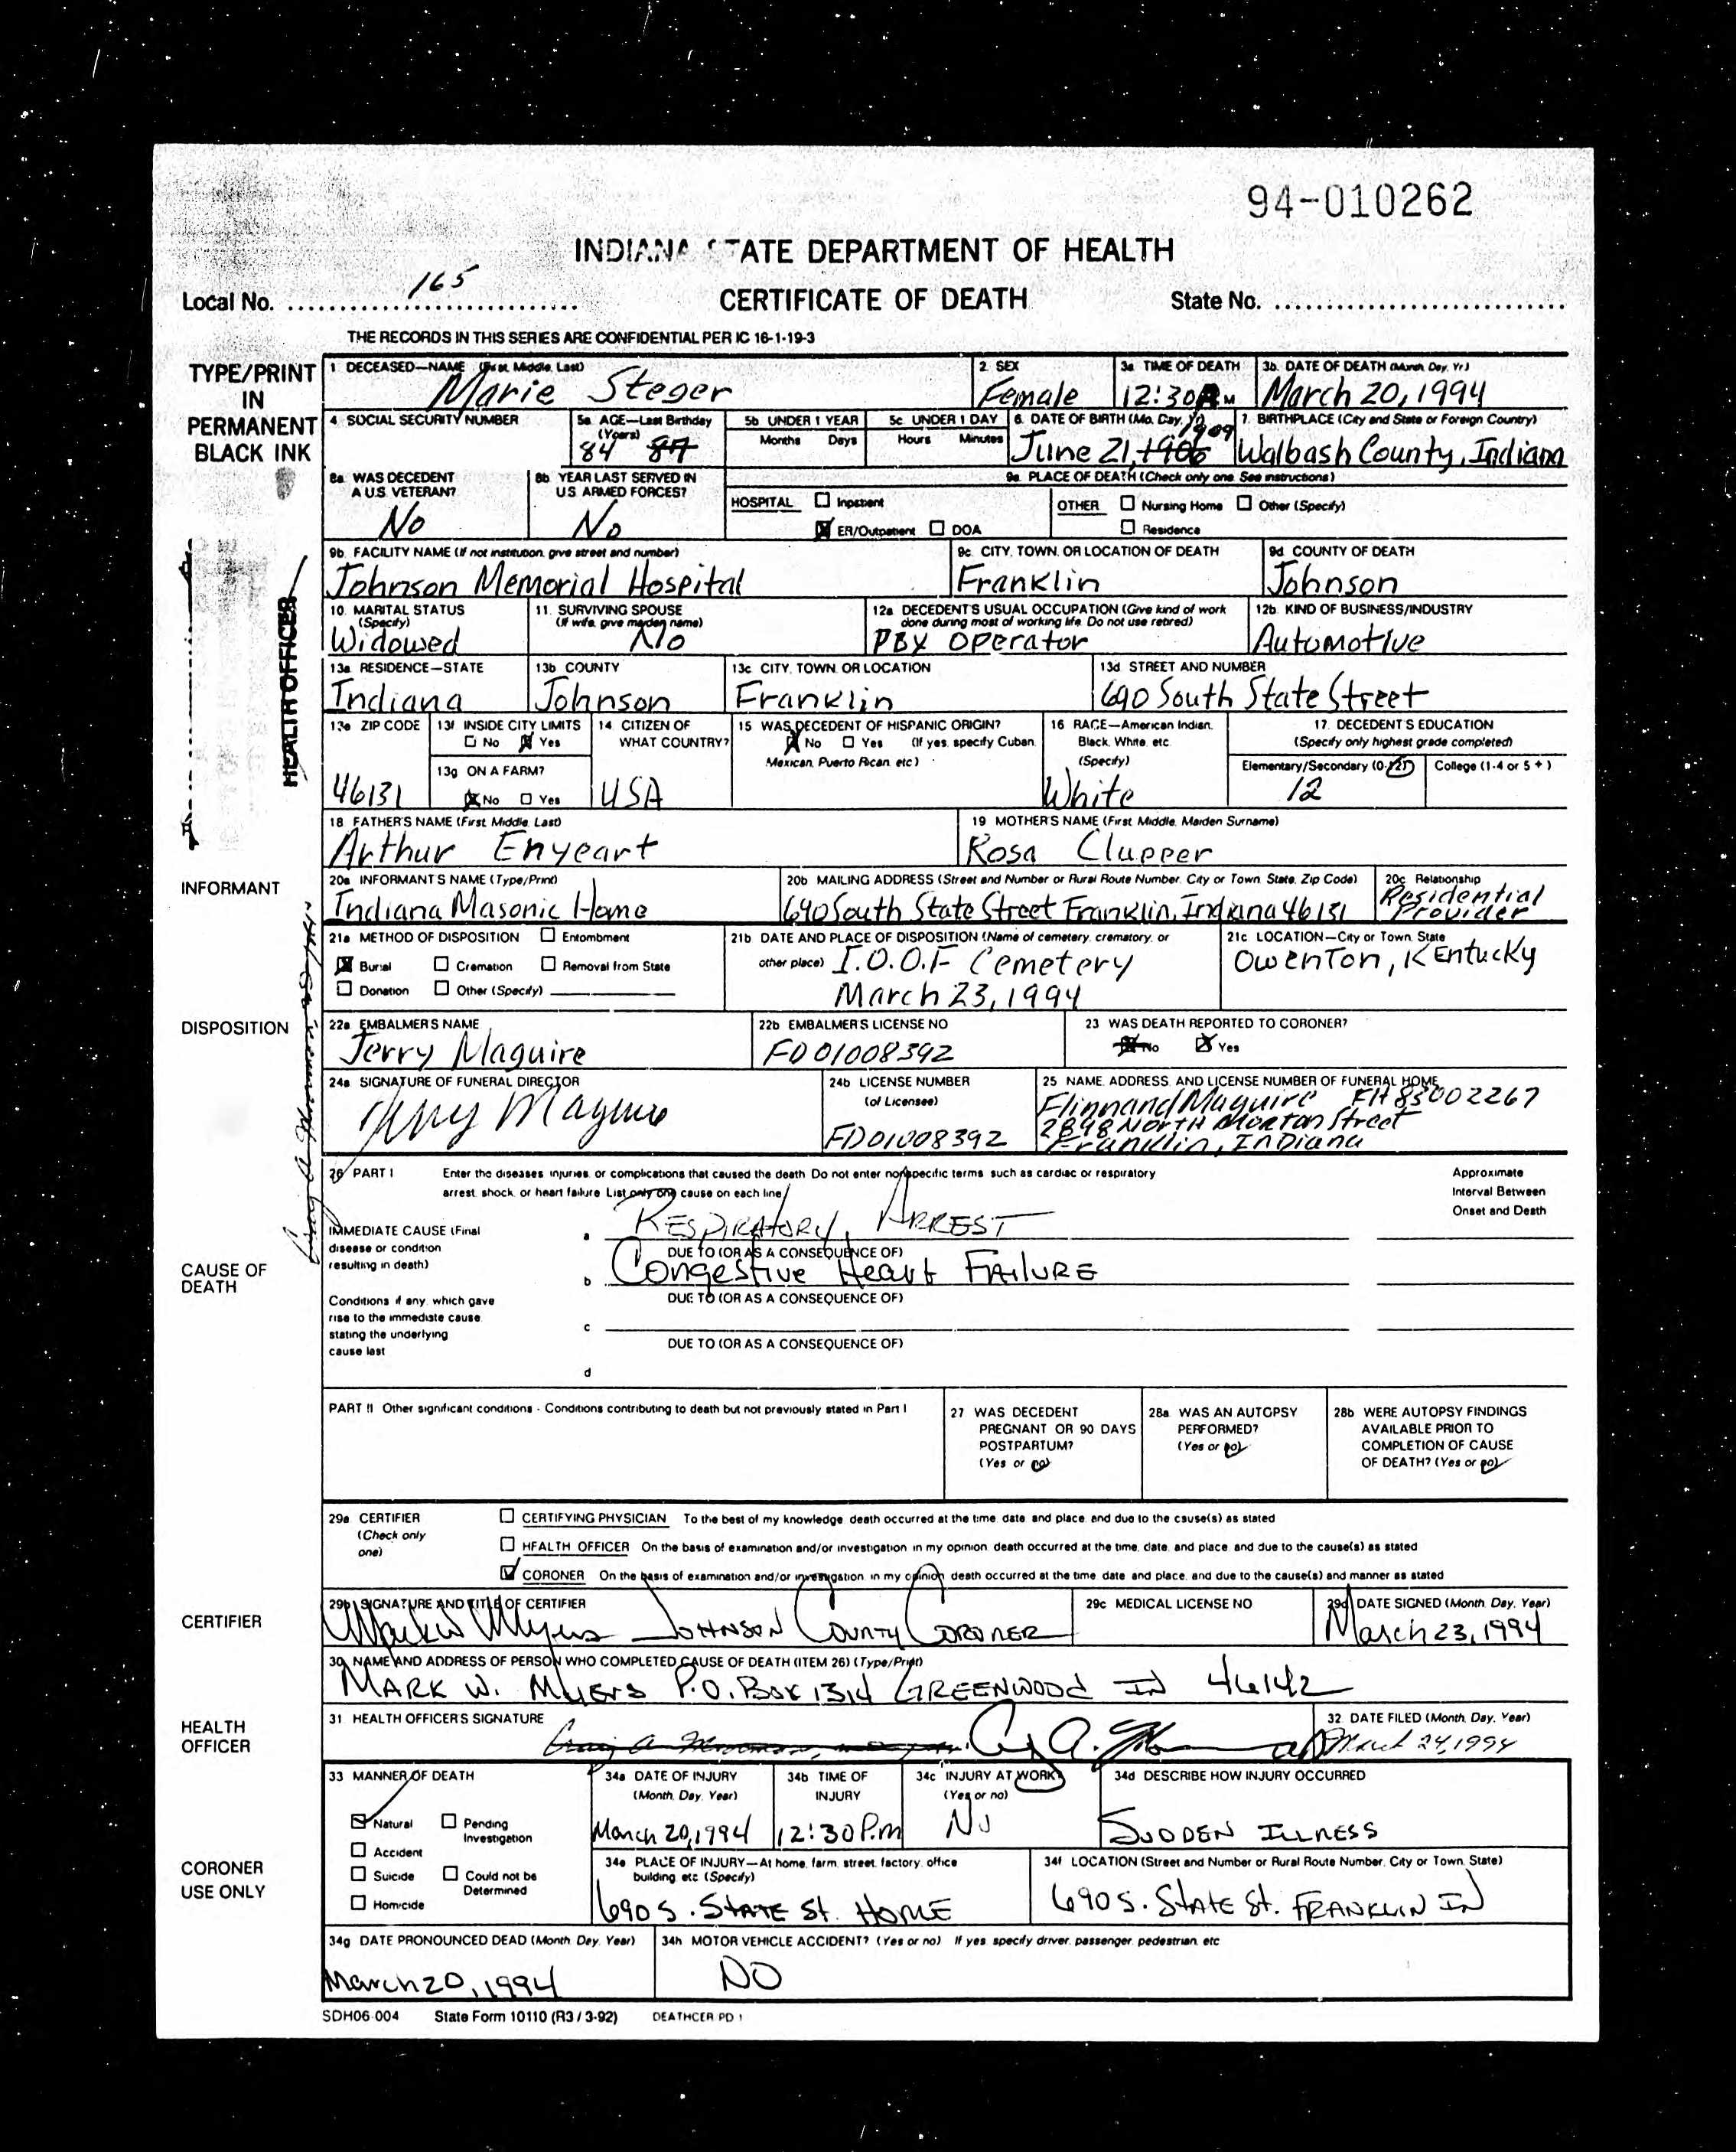 94-010262
INDIANA STATE DEPARTMENT OF HEALTH
Local No. 165
CERTIFICATE OF DEATH
State No.
THE RECORDS IN THIS SERIES ARE CONFIDENTIAL PER IC 16-1-19-3
TYPE/PRINT IN PERMANENT BLACK INK
1 DECEASED—NAME (First, Middle, Last)
Marie Steger
2. SEX
Female
3a TIME OF DEATH
12:30 M
3b. DATE OF DEATH (Month, Day, Yr.)
March 20, 1994
4 SOCIAL SECURITY NUMBER
5a. AGE—Last Birthday (Years)
84 87
5b UNDER 1 YEAR
Months Days
5c UNDER 1 DAY
Hours Minutes
6. DATE OF BIRTH (Mo. Day, Yr)
June 21, 1906 1909
7. BIRTHPLACE (City and State or Foreign Country)
Walbash County, Indiana
8a WAS DECEDENT A U.S. VETERAN?
No
8b YEAR LAST SERVED IN U.S. ARMED FORCES?
No
9a. PLACE OF DEATH (Check only one. See instructions)
HOSPITAL ☐ Inpatient
☒ ER/Outpatient ☐ DOA
OTHER ☐ Nursing Home ☐ Other (Specify)
☐ Residence
9b. FACILITY NAME (If not institution, give street and number)
Johnson Memorial Hospital
9c. CITY, TOWN, OR LOCATION OF DEATH
Franklin
9d COUNTY OF DEATH
Johnson
10. MARITAL STATUS (Specify)
Widowed
11. SURVIVING SPOUSE (If wife, give maiden name)
No
12a DECEDENT'S USUAL OCCUPATION (Give kind of work done during most of working life. Do not use retired)
PBX Operator
12b. KIND OF BUSINESS/INDUSTRY
Automotive
13a RESIDENCE—STATE
Indiana
13b COUNTY
Johnson
13c CITY, TOWN, OR LOCATION
Franklin
13d STREET AND NUMBER
690 South State Street
13e ZIP CODE
46131
13f INSIDE CITY LIMITS
☐ No ☒ Yes
13g ON A FARM?
☒ No ☐ Yes
14 CITIZEN OF WHAT COUNTRY?
USA
15 WAS DECEDENT OF HISPANIC ORIGIN?
☒ No ☐ Yes (If yes, specify Cuban, Mexican, Puerto Rican, etc.)
16 RACE—American Indian, Black, White, etc. (Specify)
White
17 DECEDENT'S EDUCATION
(Specify only highest grade completed)
Elementary/Secondary (0-12)
College (1-4 or 5+)
12
HEALTH OFFICER
18 FATHER'S NAME (First, Middle, Last)
Arthur Enyeart
19 MOTHER'S NAME (First, Middle, Maiden Surname)
Rosa Clupper
INFORMANT
20a INFORMANT'S NAME (Type/Print)
Indiana Masonic Home
20b MAILING ADDRESS (Street and Number or Rural Route Number, City or Town, State, Zip Code)
690 South State Street Franklin, Indiana 46131
20c Relationship
Residential Provider
21a METHOD OF DISPOSITION ☐ Entombment
☒ Burial ☐ Cremation ☐ Removal from State
☐ Donation ☐ Other (Specify)
21b DATE AND PLACE OF DISPOSITION (Name of cemetery, crematory, or other place)
I.O.O.F Cemetery
March 23, 1994
21c LOCATION—City or Town, State
Owenton, Kentucky
DISPOSITION
22a EMBALMER'S NAME
Jerry Maguire
22b EMBALMER'S LICENSE NO
FD01008392
23 WAS DEATH REPORTED TO CORONER?
☒ No ☒ Yes
24a SIGNATURE OF FUNERAL DIRECTOR
Jerry Maguire
24b LICENSE NUMBER (of Licensee)
FD01008392
25 NAME, ADDRESS, AND LICENSE NUMBER OF FUNERAL HOME
Flinn and Maguire FH 83002267
2898 North Morton Street
Franklin, Indiana
26 PART I Enter the diseases, injuries, or complications that caused the death. Do not enter nonspecific terms, such as cardiac or respiratory
arrest, shock, or heart failure. List only one cause on each line
Approximate Interval Between Onset and Death
CAUSE OF DEATH
IMMEDIATE CAUSE (Final disease or condition resulting in death)
a Respiratory Arrest
DUE TO (OR AS A CONSEQUENCE OF)
b Congestive Heart Failure
DUE TO (OR AS A CONSEQUENCE OF)
Conditions if any, which gave rise to the immediate cause stating the underlying cause last
c
DUE TO (OR AS A CONSEQUENCE OF)
d
PART II Other significant conditions - Conditions contributing to death but not previously stated in Part I
27 WAS DECEDENT PREGNANT OR 90 DAYS POSTPARTUM? (Yes or no)
28a. WAS AN AUTOPSY PERFORMED? (Yes or no)
28b WERE AUTOPSY FINDINGS AVAILABLE PRIOR TO COMPLETION OF CAUSE OF DEATH? (Yes or no)
29a CERTIFIER (Check only one)
☐ CERTIFYING PHYSICIAN To the best of my knowledge, death occurred at the time, date, and place, and due to the cause(s) as stated
☐ HEALTH OFFICER On the basis of examination and/or investigation, in my opinion, death occurred at the time, date, and place, and due to the cause(s) as stated
☑ CORONER On the basis of examination and/or investigation, in my opinion, death occurred at the time, date, and place, and due to the cause(s) and manner as stated
CERTIFIER
29b SIGNATURE AND TITLE OF CERTIFIER
Mark W Myers Johnson County Coroner
29c MEDICAL LICENSE NO
29d DATE SIGNED (Month, Day, Year)
March 23, 1994
30 NAME AND ADDRESS OF PERSON WHO COMPLETED CAUSE OF DEATH (ITEM 26) (Type/Print)
Mark W. Myers P.O. Box 1314 Greenwood IN 46142
HEALTH OFFICER
31 HEALTH OFFICER'S SIGNATURE
32 DATE FILED (Month, Day, Year)
March 24, 1994
CORONER USE ONLY
33 MANNER OF DEATH
☑ Natural ☐ Pending Investigation
☐ Accident
☐ Suicide ☐ Could not be Determined
☐ Homicide
34a DATE OF INJURY (Month, Day, Year)
March 20, 1994
34b TIME OF INJURY
12:30 P.m
34c INJURY AT WORK? (Yes or no)
No
34d DESCRIBE HOW INJURY OCCURRED
Sudden Illness
34e PLACE OF INJURY—At home, farm, street, factory, office building, etc. (Specify)
690 S. State St. Home
34f LOCATION (Street and Number or Rural Route Number, City or Town, State)
690 S. State St. Franklin IN
34g DATE PRONOUNCED DEAD (Month, Day, Year)
March 20, 1994
34h MOTOR VEHICLE ACCIDENT? (Yes or no) If yes, specify driver, passenger, pedestrian, etc
NO
SDH06-004 State Form 10110 (R3 / 3-92) DEATHCER.PD 1